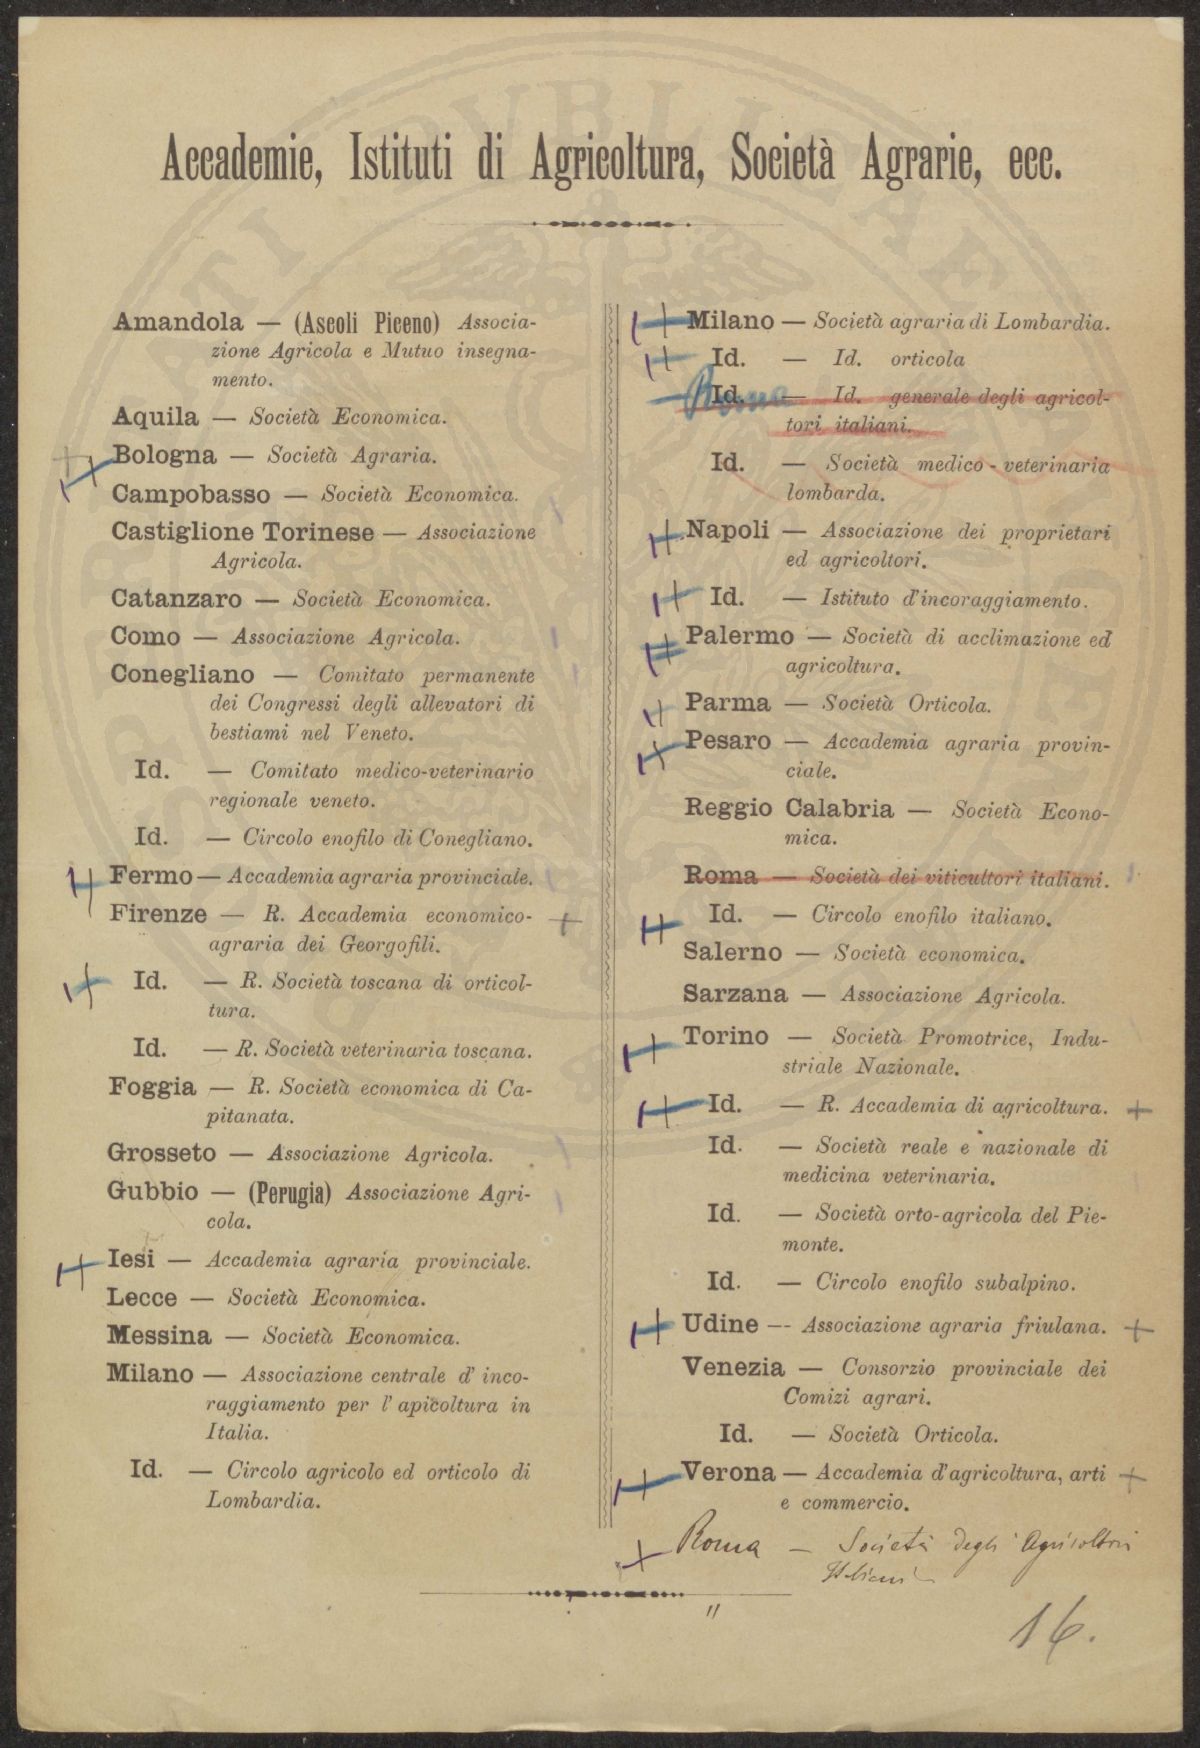 Accademie, Istituti di Agricoltura, Società Agrarie, ecc.
Amandola — (Ascoli Piceno) Associa-
zione Agricola e Mutuo insegna-
mento.
Aquila — Società Economica.
Bologna — Società Agraria.
Campobasso — Società Economica.
Castiglione Torinese — Associazione
Agricola.
Catanzaro — Società Economica.
Como — Associazione Agricola.
Conegliano — Comitato permanente
dei Congressi degli allevatori di
bestiami nel Veneto.
Id. — Comitato medico-veterinario
regionale veneto.
Id. — Circolo enofilo di Conegliano.
Fermo — Accademia agraria provinciale.
Firenze — R. Accademia economico-
agraria dei Georgofili.
Id. — R. Società toscana di orticol-
tura.
Id. — R. Società veterinaria toscana.
Foggia — R. Società economica di Ca-
pitanata.
Grosseto — Associazione Agricola.
Gubbio — (Perugia) Associazione Agri-
cola.
Iesi — Accademia agraria provinciale.
Lecce — Società Economica.
Messina — Società Economica.
Milano — Associazione centrale d' inco-
raggiamento per l' apicoltura in
Italia.
Id. — Circolo agricolo ed orticolo di
Lombardia.
Milano — Società agraria di Lombardia.
Id. — Id. orticola
Roma
Id. — Id. generale degli agricol-
tori italiani.
Id. — Società medico-veterinaria
lombarda.
Napoli — Associazione dei proprietari
ed agricoltori.
Id. — Istituto d'incoraggiamento.
Palermo — Società di acclimazione ed
agricoltura.
Parma — Società Orticola.
Pesaro — Accademia agraria provin-
ciale.
Reggio Calabria — Società Econo-
mica.
Roma — Società dei viticultori italiani.
Id. — Circolo enofilo italiano.
Salerno — Società economica.
Sarzana — Associazione Agricola.
Torino — Società Promotrice, Indu-
striale Nazionale.
Id. — R. Accademia di agricoltura.
Id. — Società reale e nazionale di
medicina veterinaria.
Id. — Società orto-agricola del Pie-
monte.
Id. — Circolo enofilo subalpino.
Udine — Associazione agraria friulana.
Venezia — Consorzio provinciale dei
Comizi agrari.
Id. — Società Orticola.
Verona — Accademia d'agricoltura, arti
e commercio.
Roma — Società degli Agricoltori
Italiani
16.